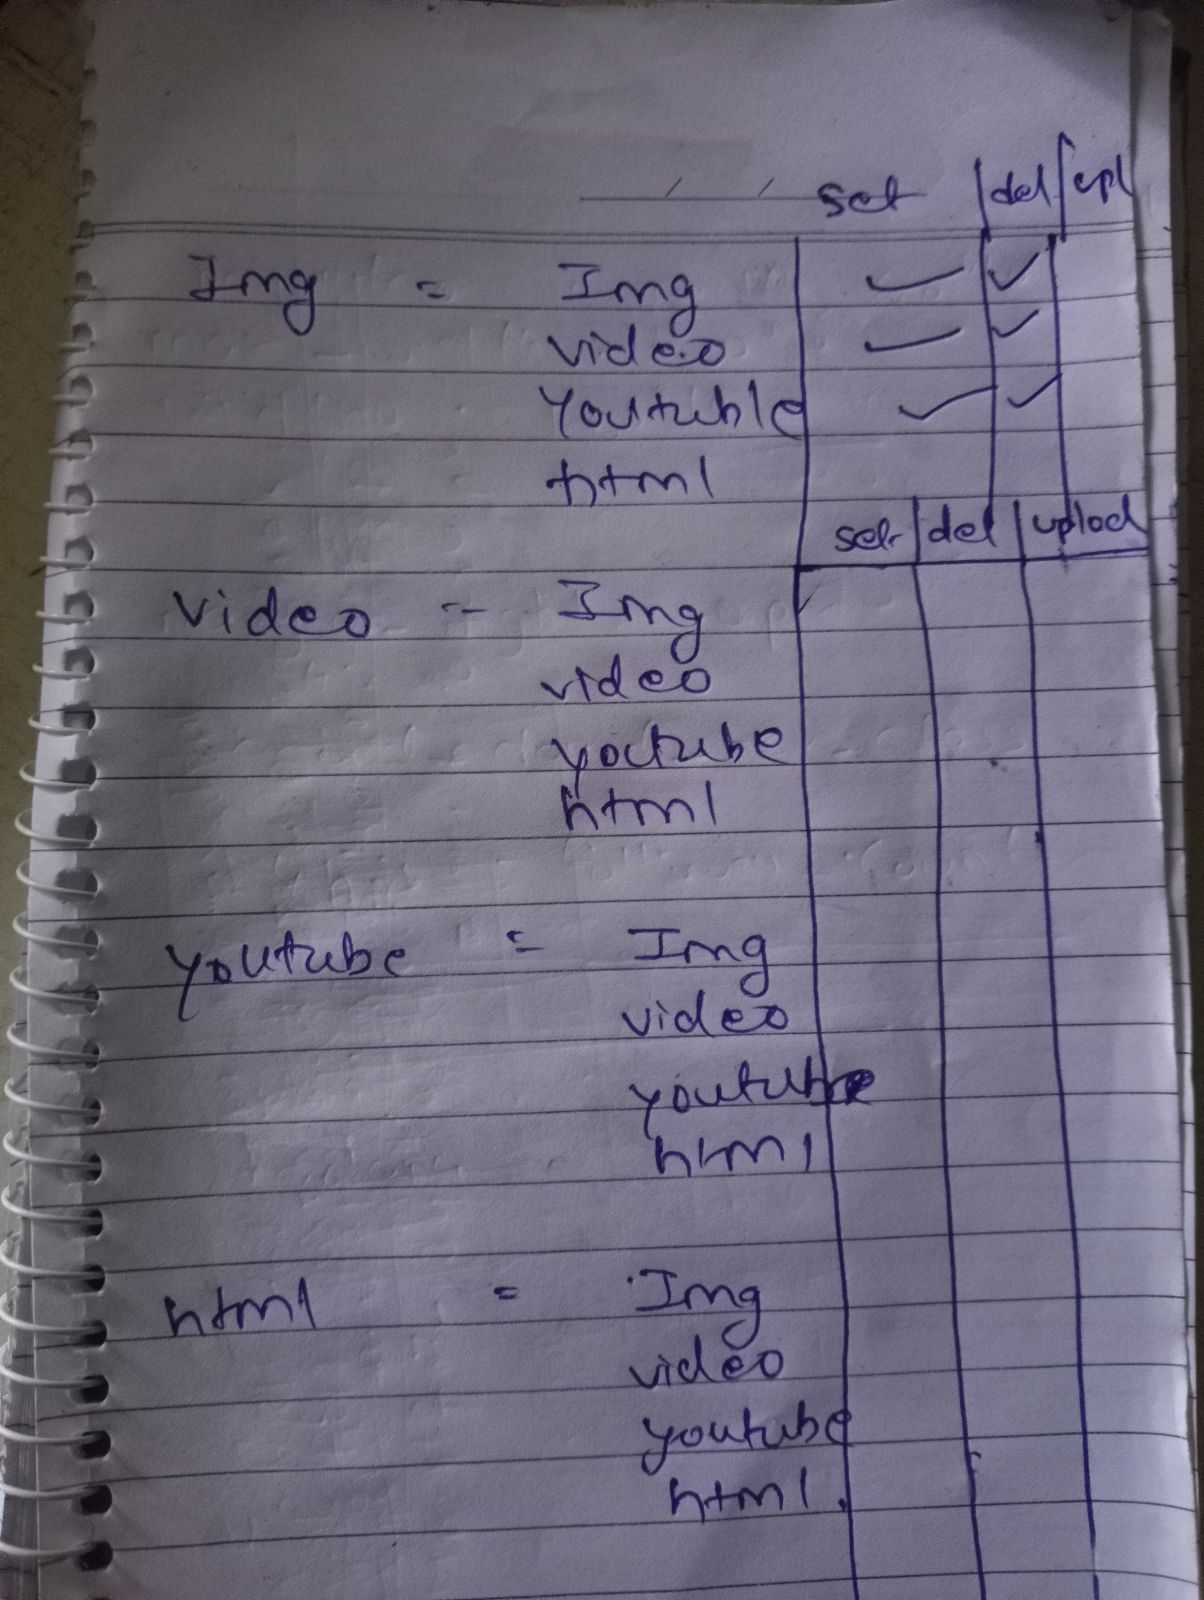 set | del | upl
Img = Img ✓ ✓
video ✓ ✓
Youtuble ✓ ✓
html
sel | del | uplod
video = Img
video
youtube
html
youtube = Img
video
youtube
html
html = Img
video
youtube
html.